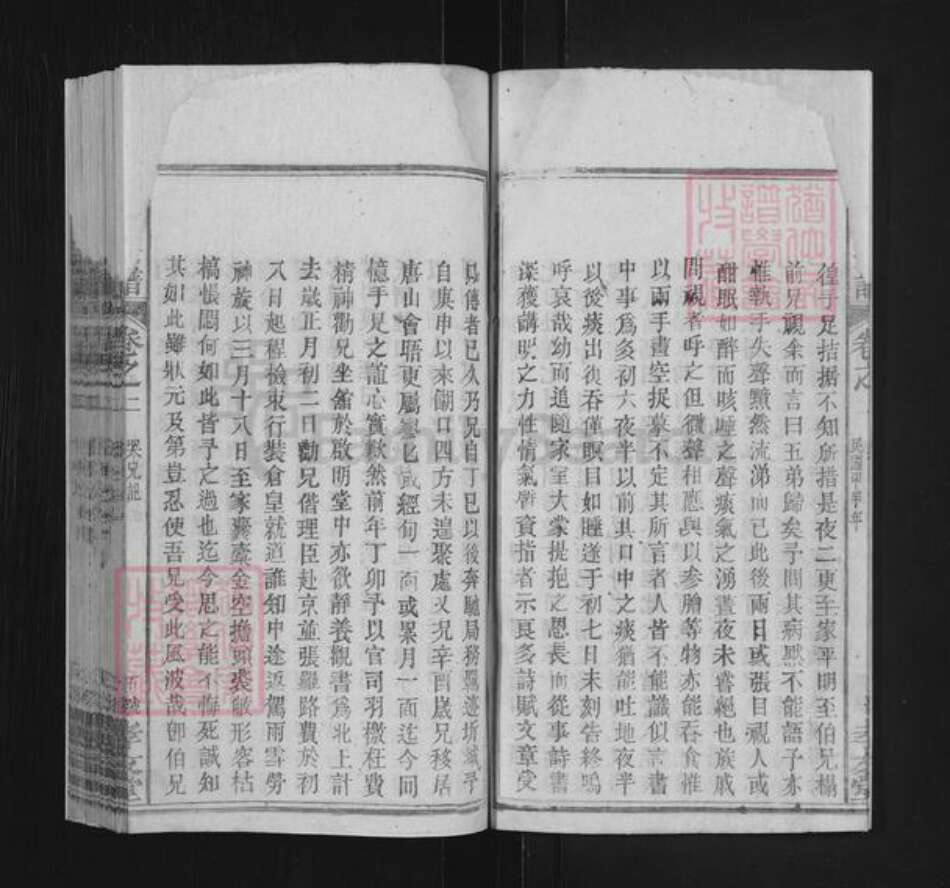 徨手足拮据不知所措是夜二更至家平明至伯兄榻
前兄視余而言曰五弟歸矣予問其病默不能語予亦
惟執手失聲黯然流涕而已此後兩日或張目視人或
酣眠如醉而咳唾之聲痰氣之湧晝夜未嘗絕也族戚
問視者呼之但微聲相應與以參膽等物亦能吞食惟
以兩手畫空捉摹不定其所言者人皆不能識似言書
中事爲多初六夜半以前其口中之痰猶能吐地夜半
以後痰出復吞僅瞑目如睡遂于初七日未刻告終嗚
呼哀哉幼而追隨家室大蒙提抱之恩長而從事詩書
深獲講明之力性情氣質資指者示良多詩賦文章受
具傳者已久乃兄自丁巳以後奔馳局務羈迹圻城予
自庚申以來餬口四方未遑聚處又况辛酉歲兄移居
唐山會晤更屬寥寥或經旬一面或累月一面迄今回
憶手足之誼心實歉然前年丁卯予以官司羽檄枉費
精神勸兄坐舘於啟明堂中亦欲靜養觀書爲北上計
去歲正月初二日勸兄偕理臣赴京並張羅路費於初
八日起程檢束行裝倉皇就道誰知中途返駕雨雪勞
神旋以三月十八日至家囊橐金空擔頭裘敝形容枯
槁悵悶何如此皆予之過也迄今思之能不悔死誠知
其如此雖狀元及第豈忍使吾兄受此風波哉卽伯兄
譜
卷之二
哭兄龍
孝友堂